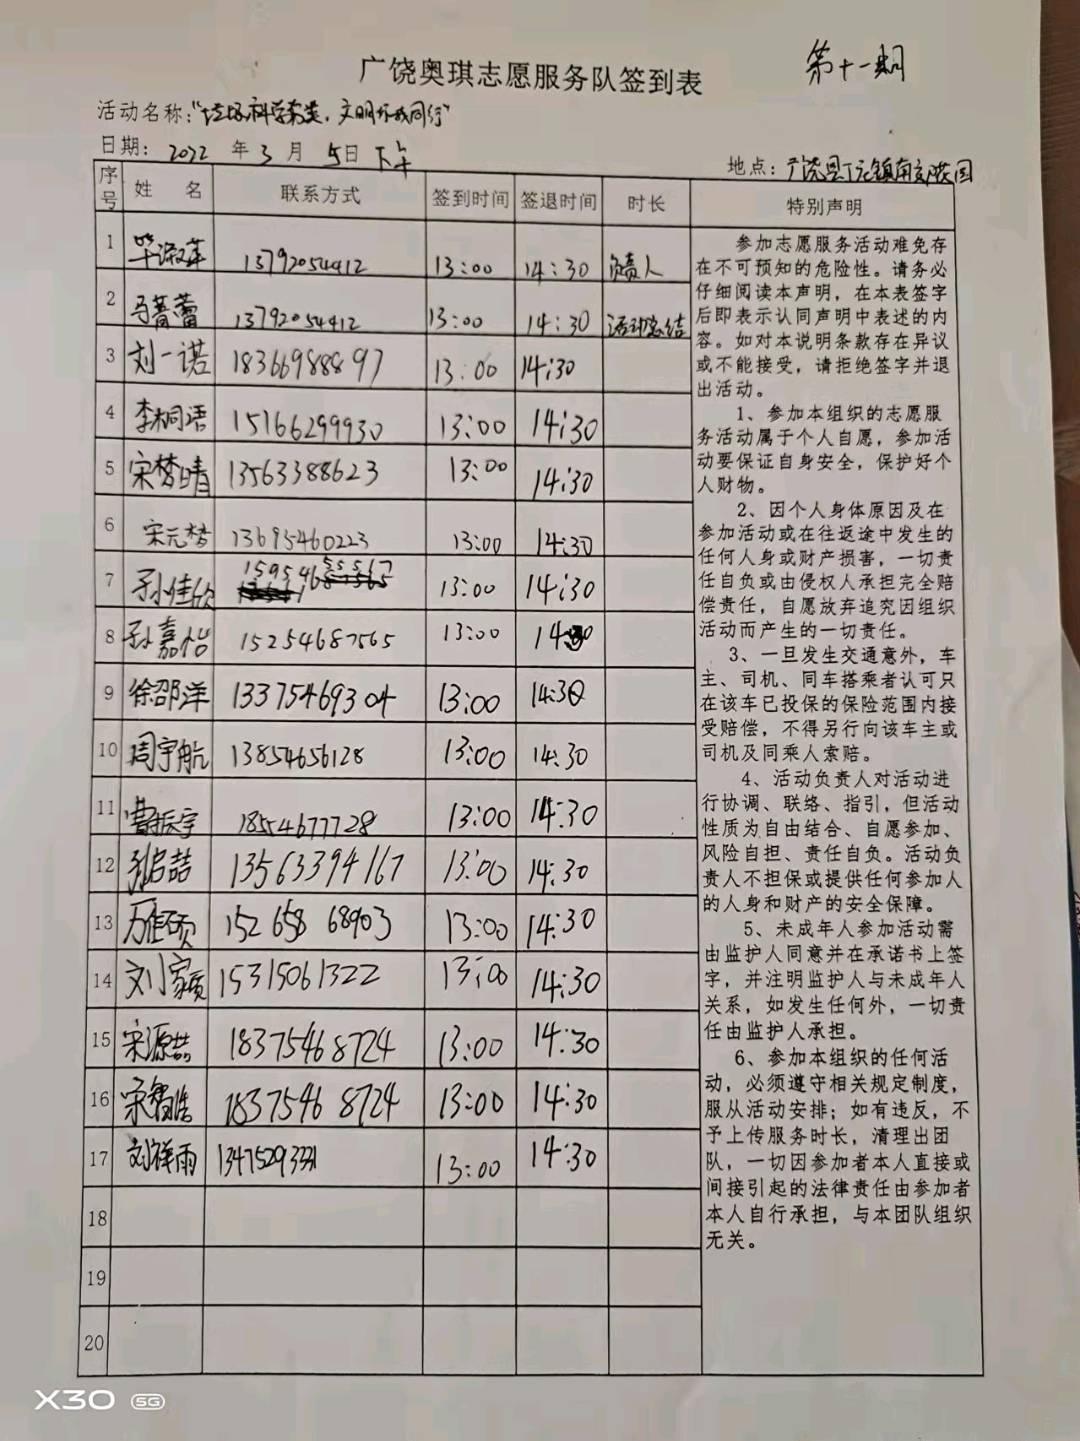 第十一期
广饶奥琪志愿服务队签到表
活动名称:"垃圾科学分类,文明你我同行"
日期: 2022 年 3 月 5日 下午
地点:广饶县
序号 姓 名 联系方式 签到时间 签退时间 时长 特别声明
1 毕淑萍 13792054412 13:00 14:30 负责人
2 马蔷蕾 13792054412 13:00 14:30 活动总结
3 刘一诺 18366988897 13:00 14:30
4 李桐语 15166299930 13:00 14:30
5 宋梦晴 13563388623 13:00 14:30
6 宋元梦 13695460223 13:00 14:30
7 孙佳欣 13:00 14:30
8 孙嘉怡 15254687565 13:00 14:30
9 徐邵洋 13375469304 13:00 14:30
10 周宇航 13854656128 13:00 14:30
11 曹振宇 18554677728 13:00 14:30
12 张启喆 13563394167 13:00 14:30
13 152 658 68903 13:00 14:30
14 刘家 15315061322 13:00 14:30
15 宋源喆 18375468724 13:00 14:30
16 宋智浩 1837546 8724 13:00 14:30
17 刘祥雨 13475293331 13:00 14:30
18
19
20
参加志愿服务活动难免存
在不可预知的危险性。请务必
仔细阅读本声明,在本表签字
后即表示认同声明中表述的内
容。如对本说明条款存在异议
或不能接受,请拒绝签字并退
出活动。
1、参加本组织的志愿服
务活动属于个人自愿,参加活
动要保证自身安全,保护好个
人财物。
2、因个人身体原因及在
参加活动或在往返途中发生的
任何人身或财产损害,一切责
任自负或由侵权人承担完全赔
偿责任,自愿放弃追究因组织
活动而产生的一切责任。
3、一旦发生交通意外,车
主、司机、同车搭乘者认可只
在该车已投保的保险范围内接
受赔偿,不得另行向该车主或
司机及同乘人索赔。
4、活动负责人对活动进
行协调、联络、指引,但活动
性质为自由结合、自愿参加、
风险自担、责任自负。活动负
责人不担保或提供任何参加人
的人身和财产的安全保障。
5、未成年人参加活动需
由监护人同意并在承诺书上签
字,并注明监护人与未成年人
关系,如发生任何外,一切责
任由监护人承担。
6、参加本组织的任何活
动,必须遵守相关规定制度,
服从活动安排;如有违反,不
予上传服务时长,清理出团
队,一切因参加者本人直接或
间接引起的法律责任由参加者
本人自行承担,与本团队组织
无关。
X30 5G